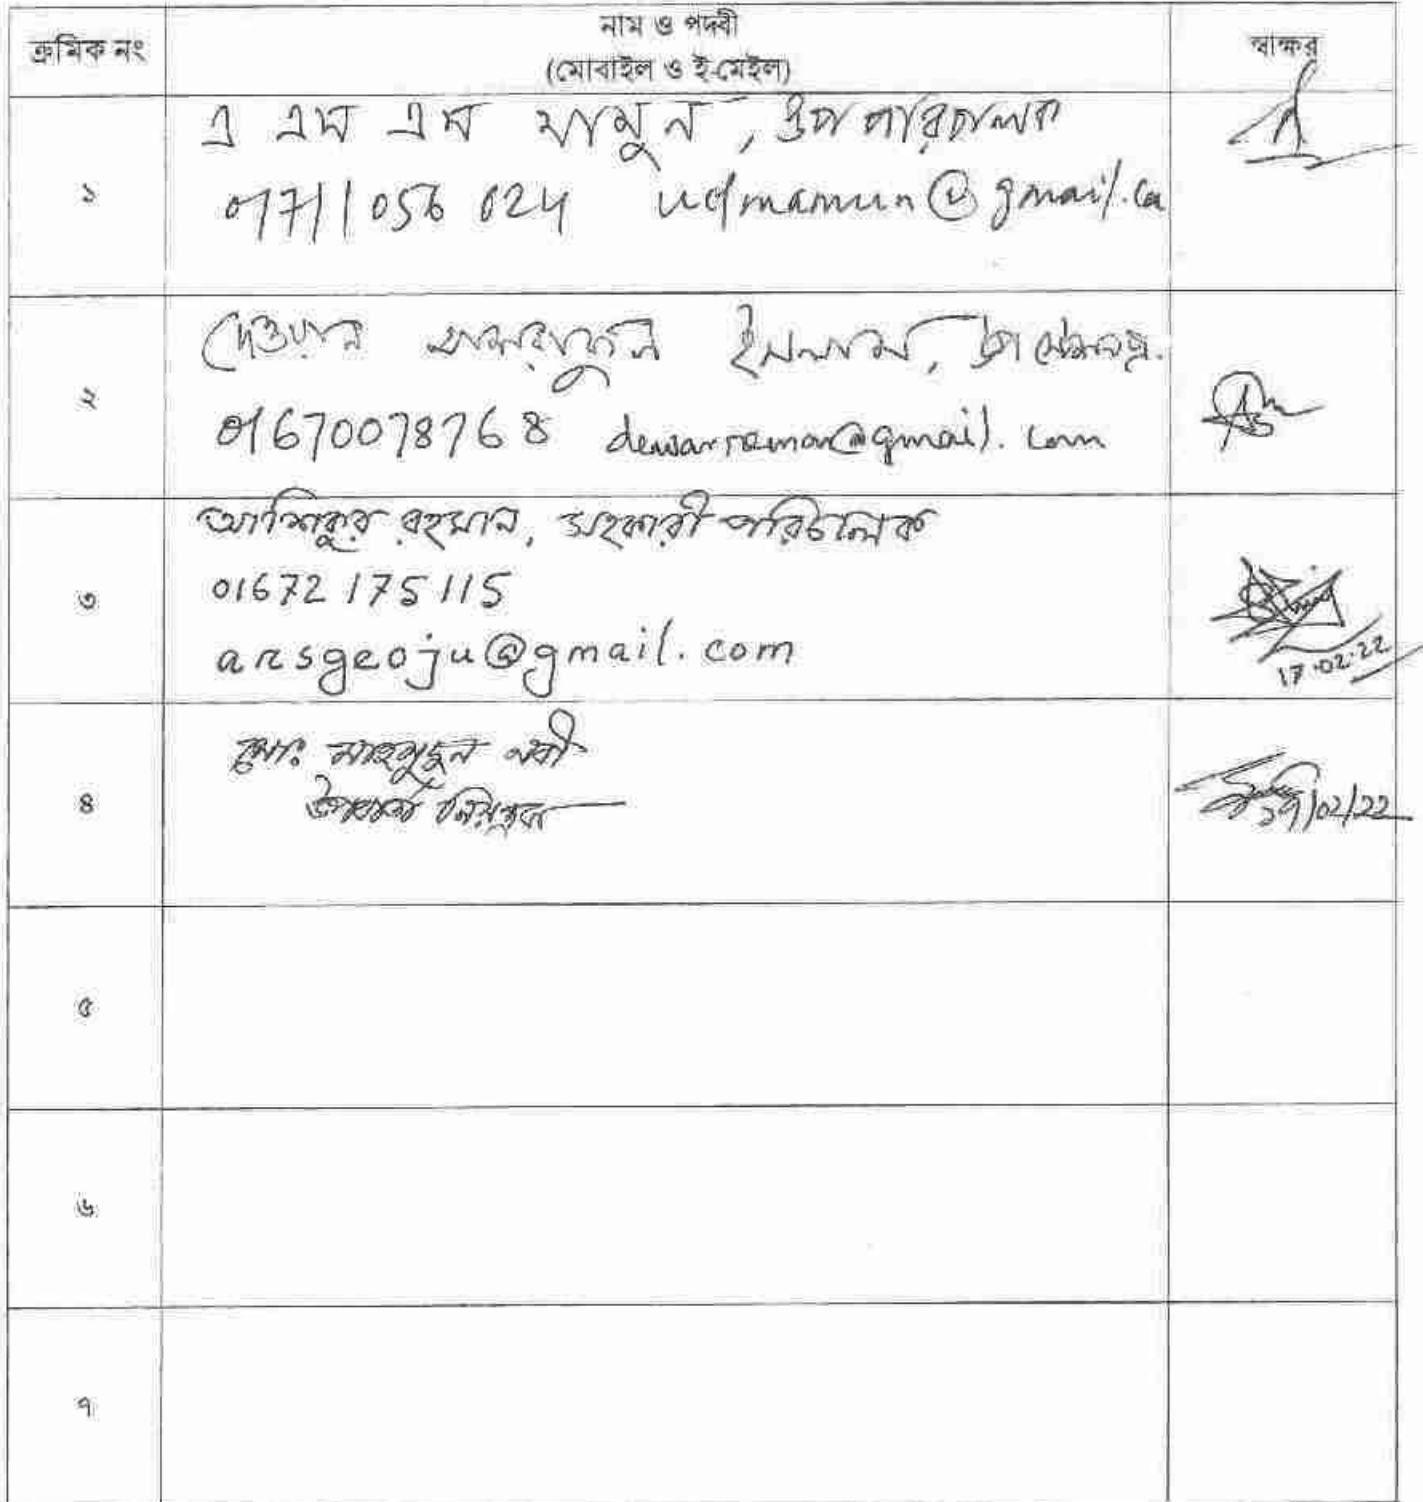 ক্রমিক নং
নাম ও পদবী
(মোবাইল ও ই-মেইল)
স্বাক্ষর
১
এ এস এম মামুন, উপ পরিচালক
01711056024 udmamun@gmail.co
২
দেওয়ান আশরাফুল ইসলাম,
01670078768 @gmail.com
৩
আশিকুর রহমান, সহকারী পরিচালক
01672175115
arsgeoju@gmail.com
17.02.22
৪
মোঃ মাহমুদুন নবী
নিয়ন্ত্রক
১৭/02/22
৫
৬
৭